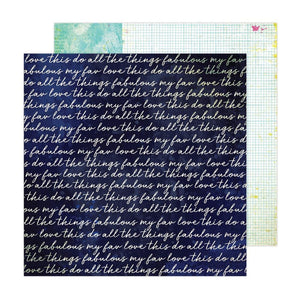 love this do all the things fabulous my fav
fabulous my fav love this do all the things
things fabulous my fav love this do all the
fav love this do all the things fabulous my
do all the things fabulous my fav love this
all the things fabulous my fav love this do
the things fabulous my fav love this do all
things fabulous my fav love this do all the
fabulous my fav love this do all the things
my fav love this do all the things fabulous
fav love this do all the things fabulous my
love this do all the things fabulous my fav